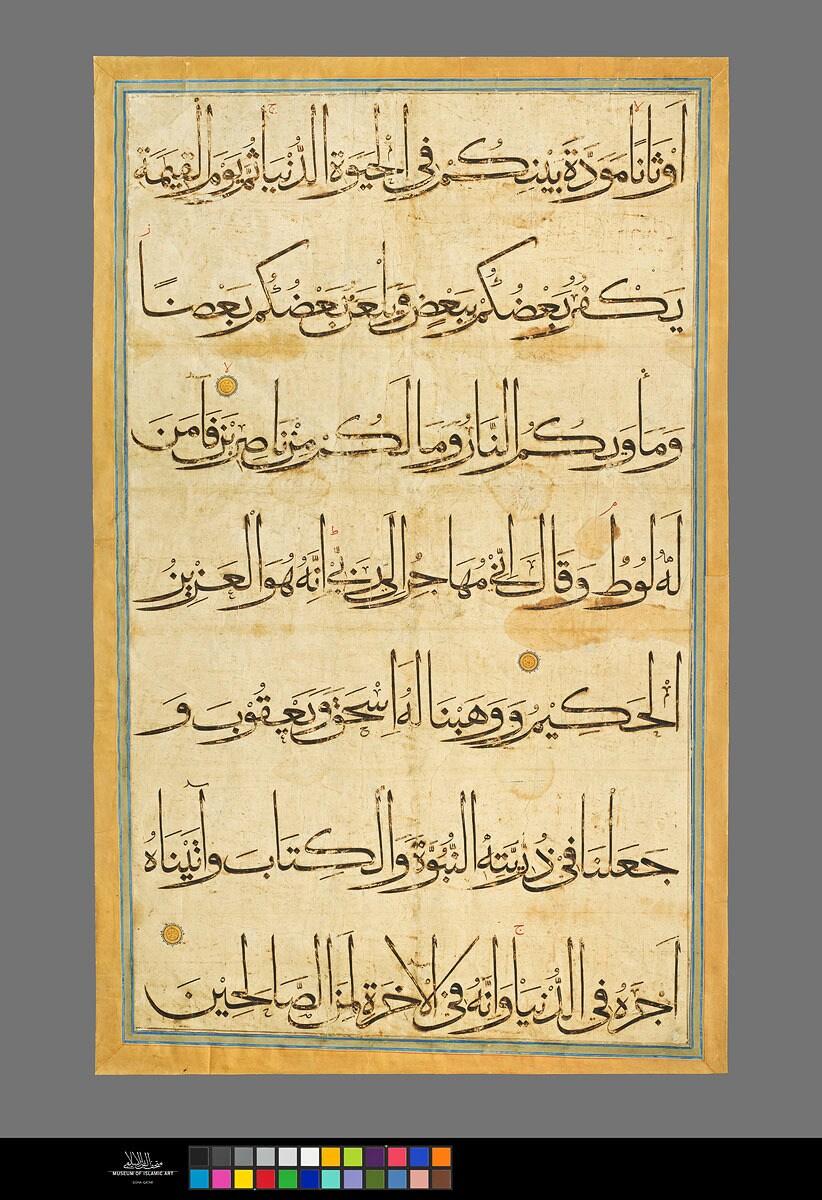 أَوْثَانًا مَوَدَّةَ بَيْنِكُمْ فِي الْحَيٰوةِ الدُّنْيَا ثُمَّ يَوْمَ الْقِيٰمَةِ
يَكْفُرُ بَعْضُكُمْ بِبَعْضٍ وَيَلْعَنُ بَعْضُكُمْ بَعْضًا
وَمَأْوٰيكُمُ النَّارُ وَمَا لَكُمْ مِنْ نَاصِرِينَ فَآمَنَ
لَهُ لُوطٌ وَقَالَ إِنِّي مُهَاجِرٌ إِلَى رَبِّي إِنَّهُ هُوَ الْعَزِيزُ
الْحَكِيمُ وَوَهَبْنَا لَهُ إِسْحٰقَ وَيَعْقُوبَ وَ
جَعَلْنَا فِي ذُرِّيَّتِهِ النُّبُوَّةَ وَالْكِتَابَ وَآتَيْنَاهُ
أَجْرَهُ فِي الدُّنْيَا وَإِنَّهُ فِي الْآخِرَةِ لَمِنَ الصَّالِحِينَ
متحف الفن الإسلامي
MUSEUM OF ISLAMIC ART
DOHA · QATAR